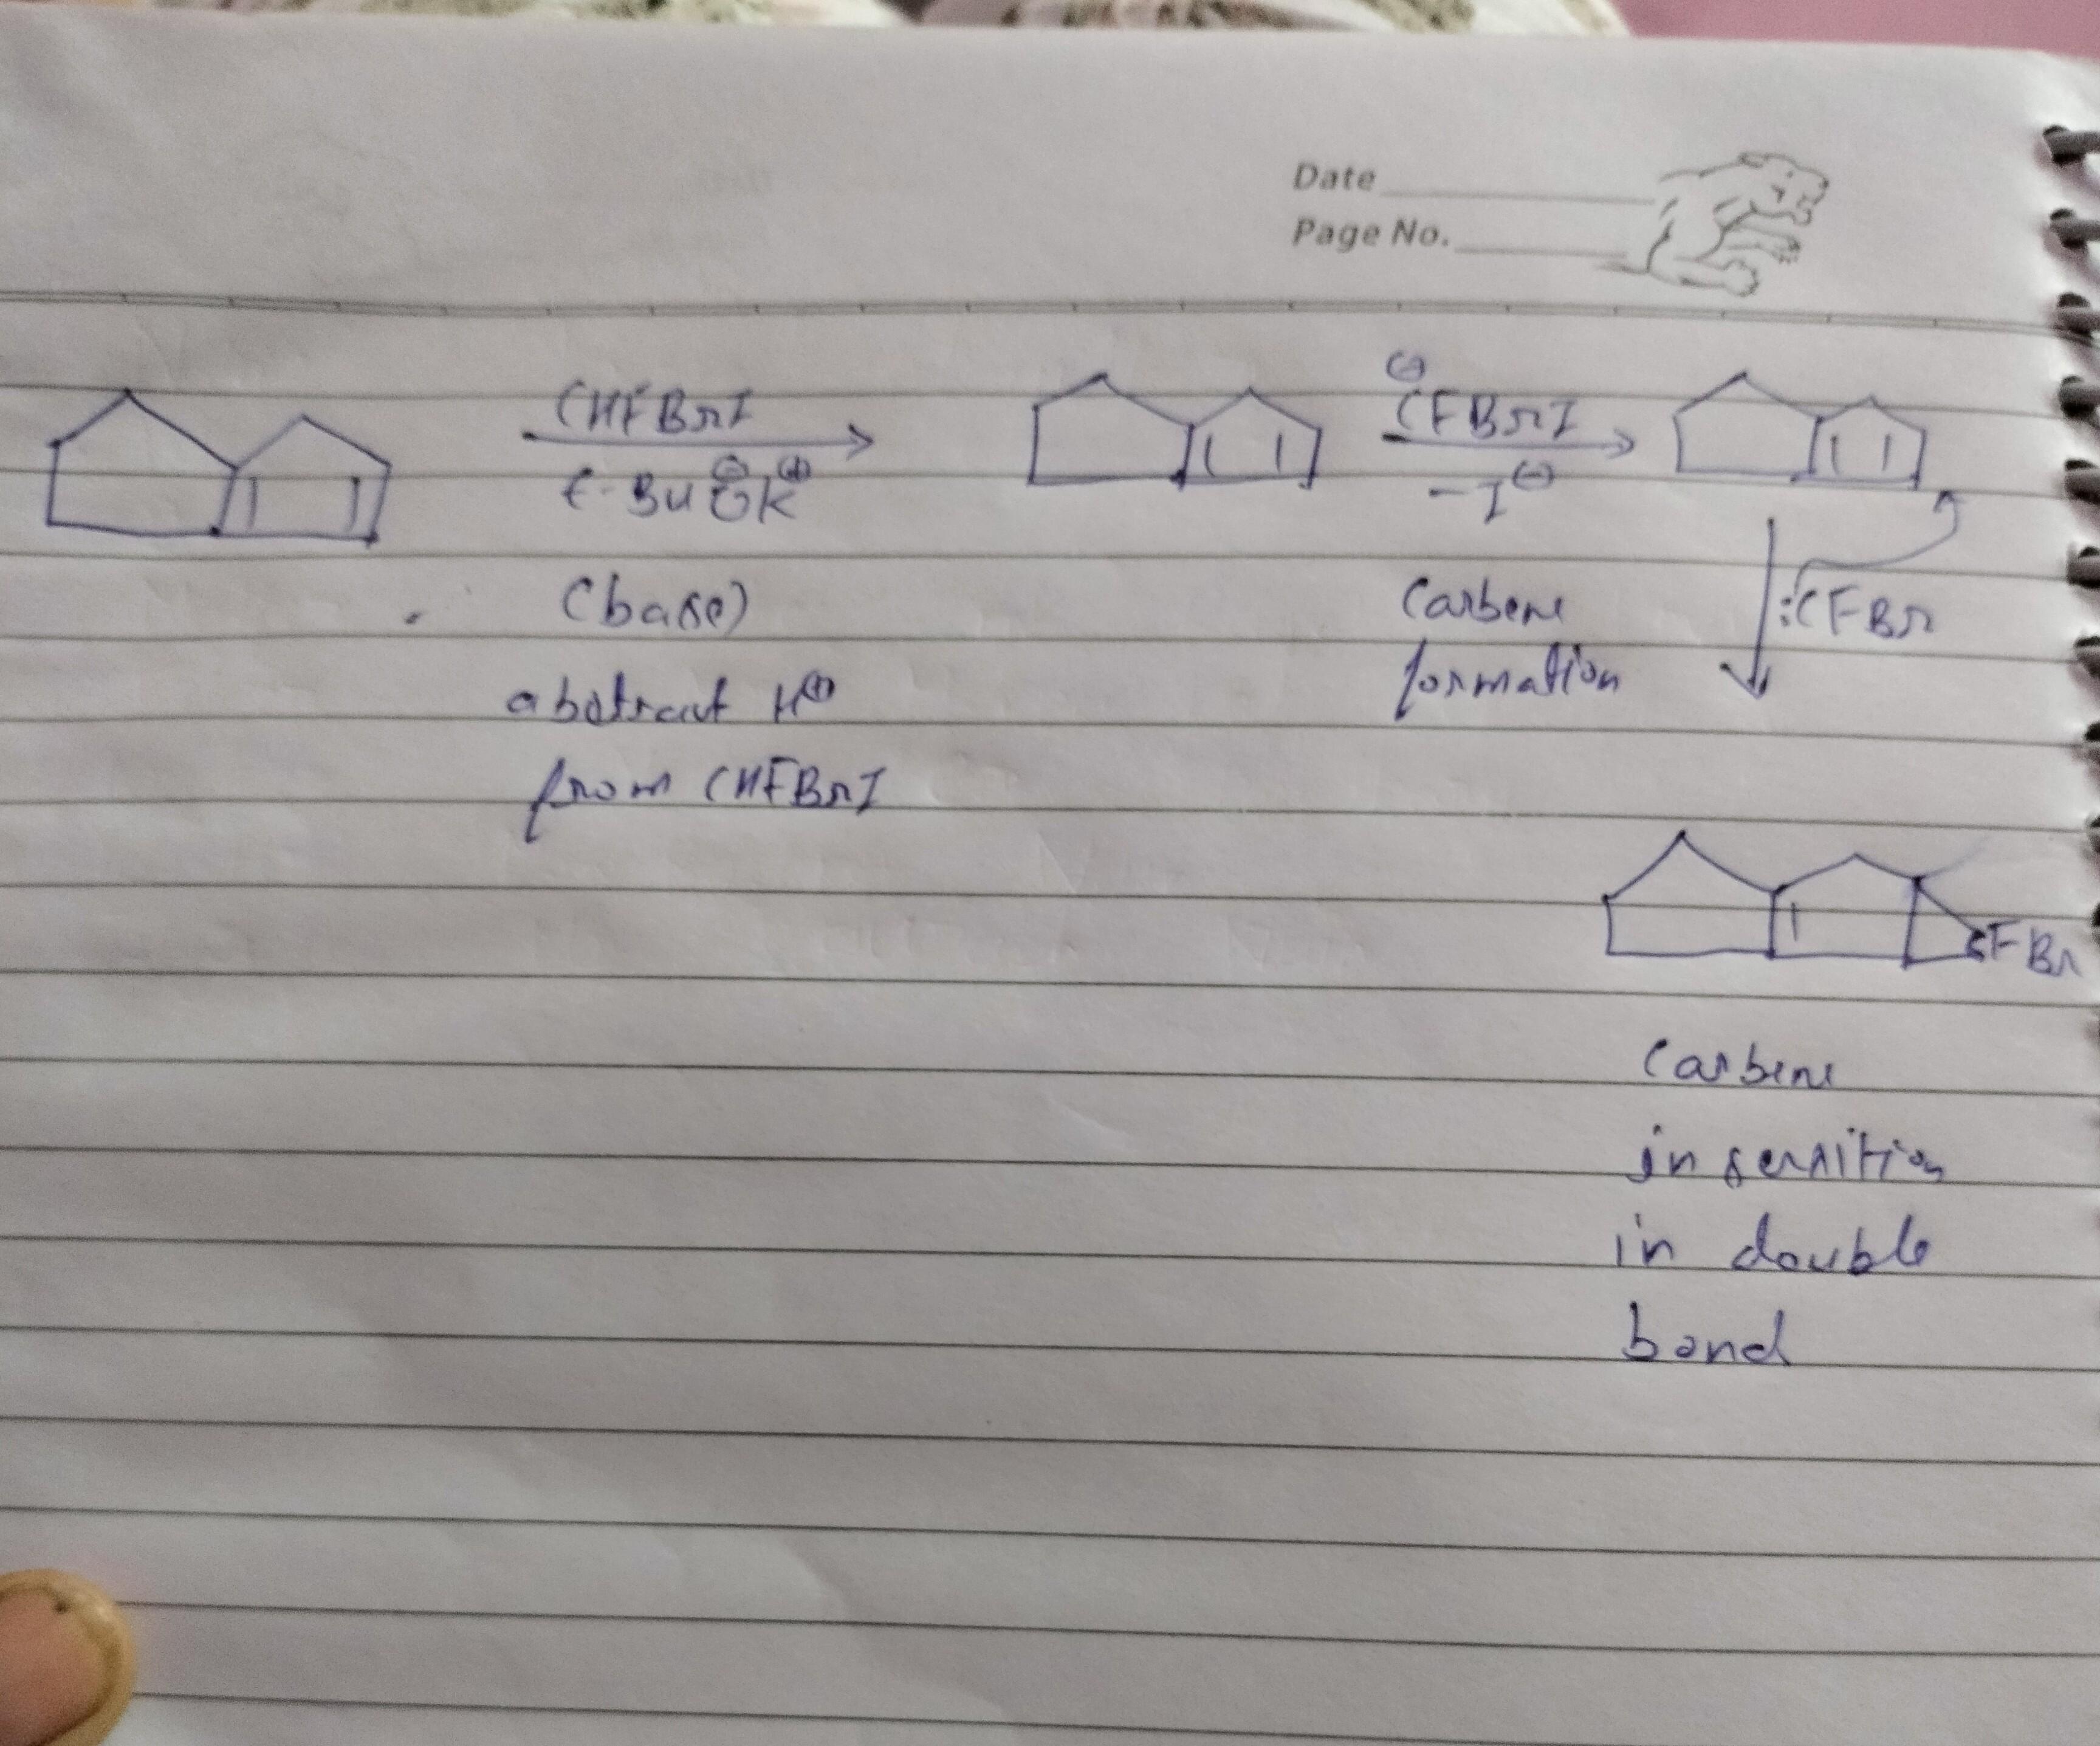 Date
Page No.
CHFBrI
t-BuO⊖K⊕
(base)
abstract H⊕
from CHFBrI
⊖
CFBrI
-I⊖
Carbene
formation
:CFBr
CFBr
Carbene
in
in double
bond